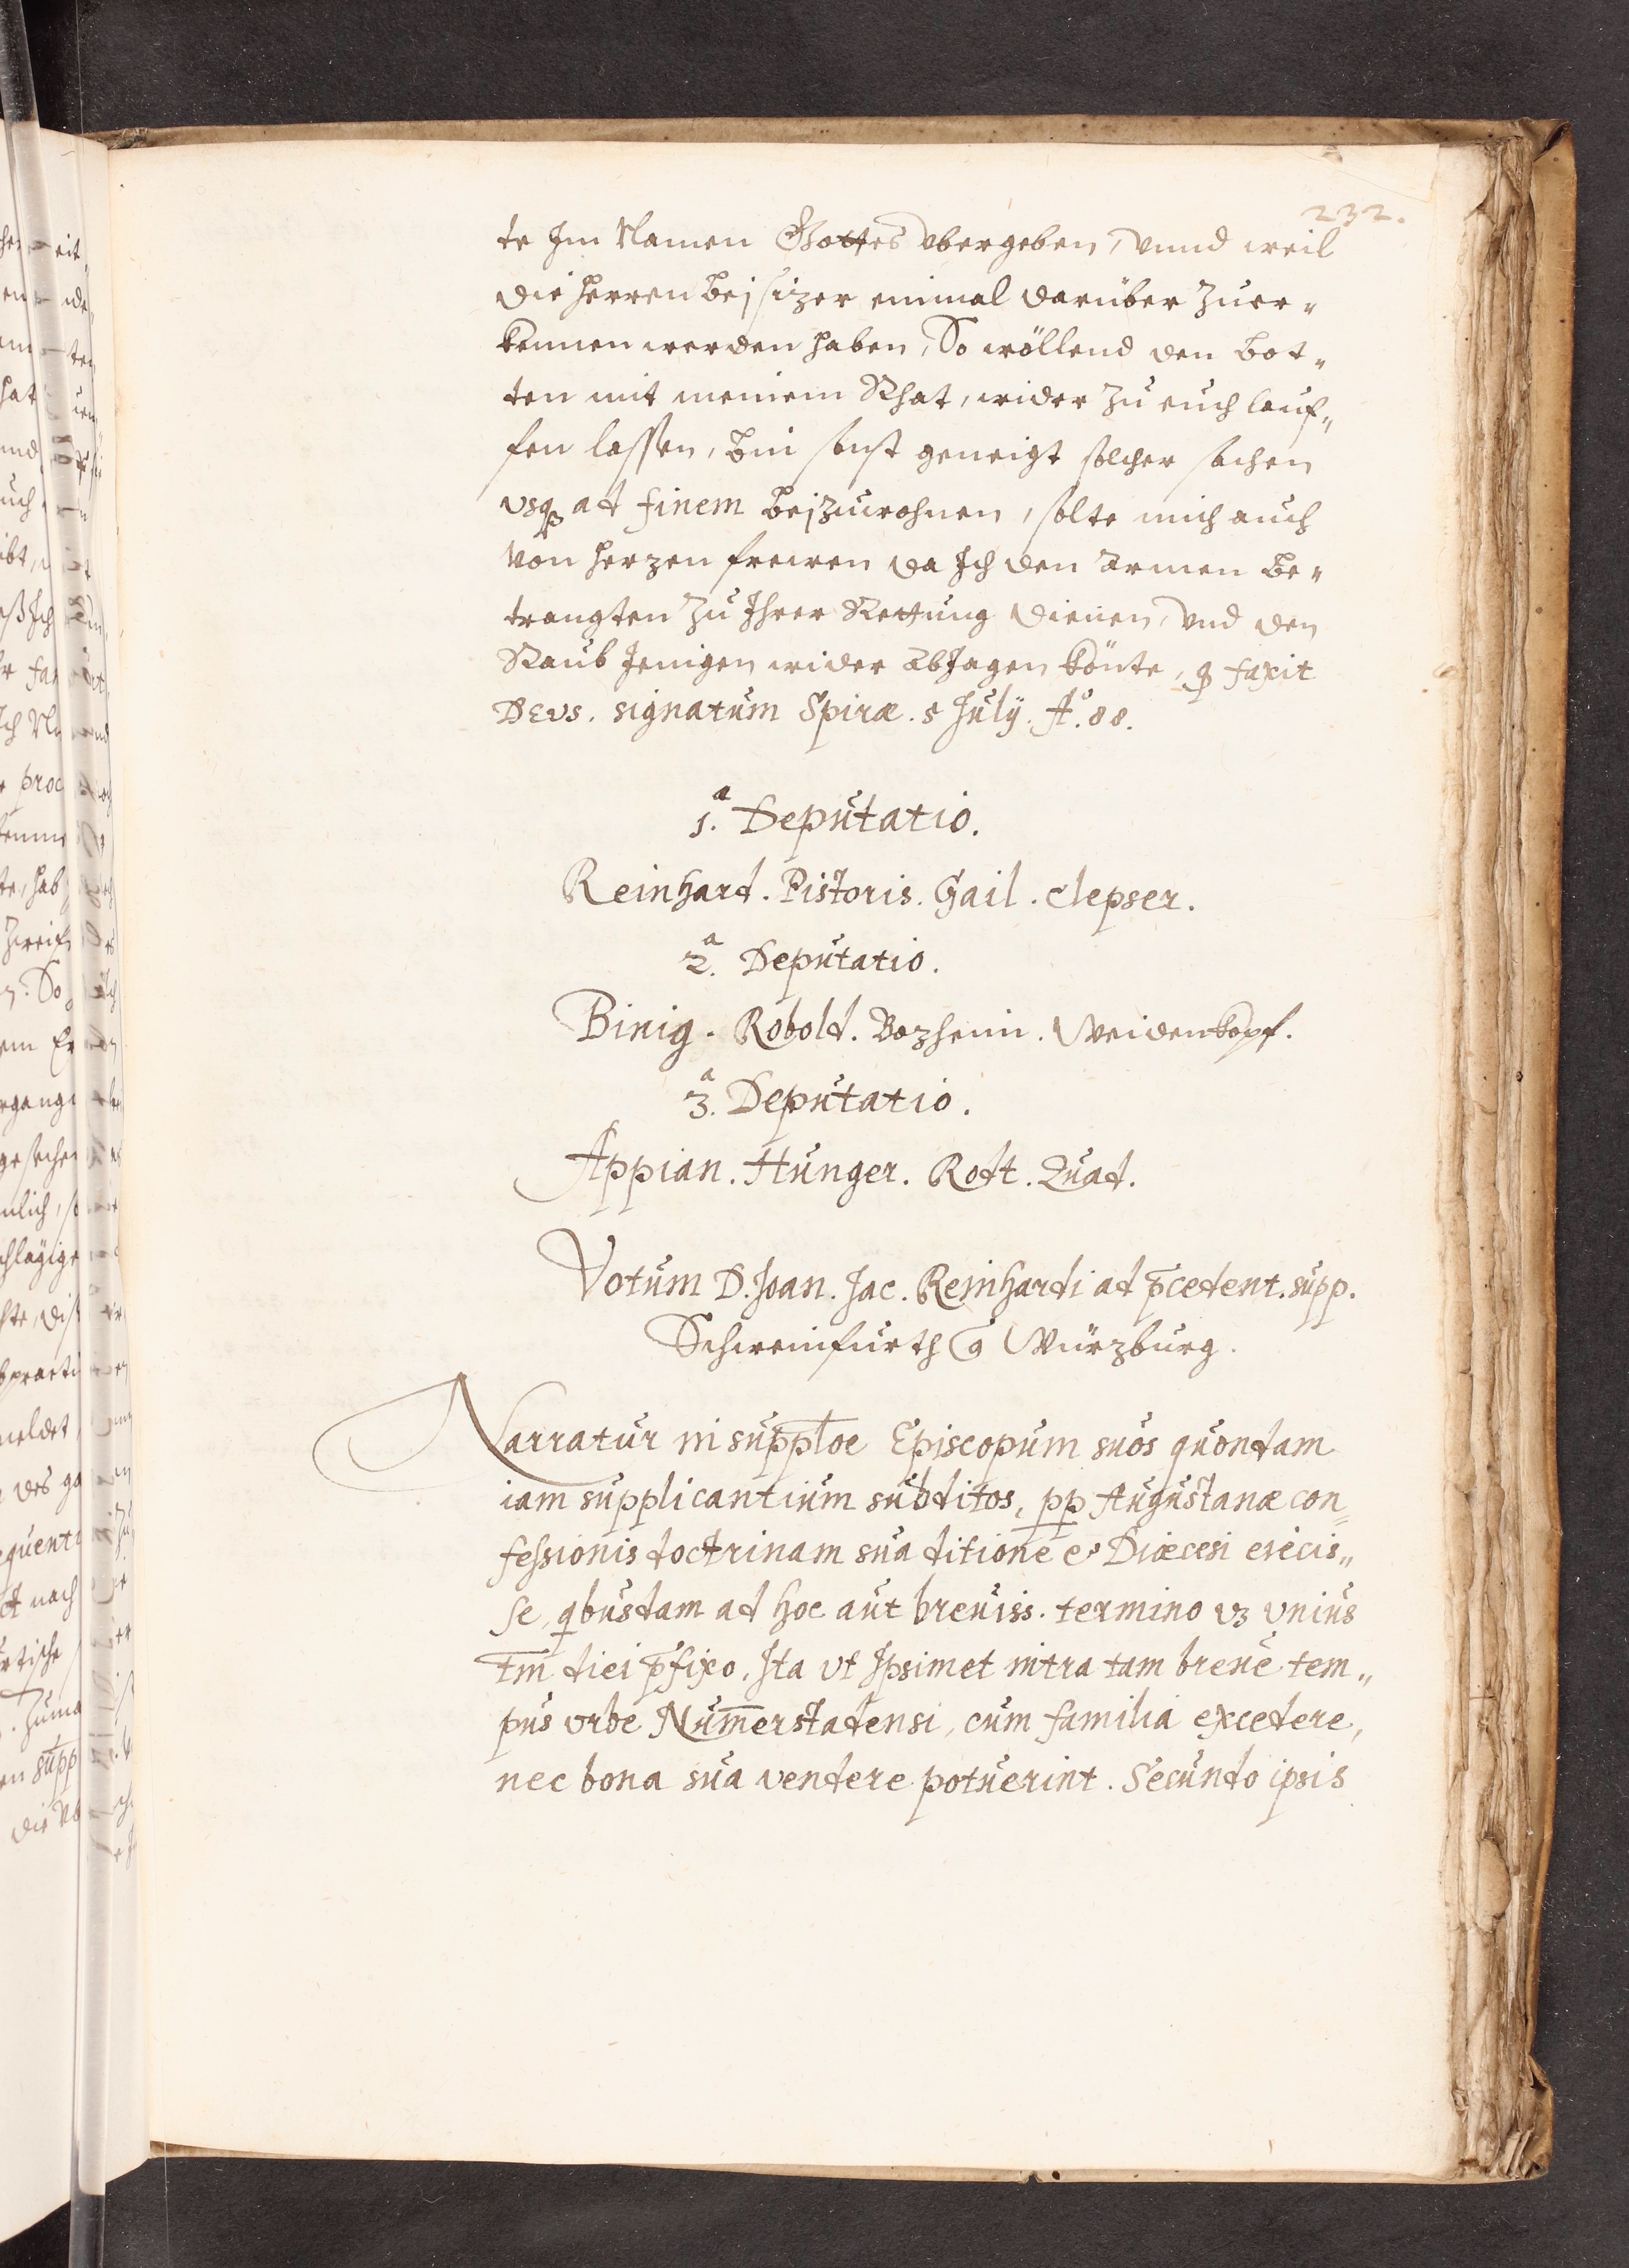 232.
te Im Namen Gottes vbergeben, vnnd weil
die herren beisizer einmal darüber zuer-
kennen werden haben, So wöllend den bot-
ten mit meinem Rhat, wider zu euch lauf-
fen lassen, bin sonst geneigt solcher sachen
vsq ad finem beizuwohnen, solte mich auch
von herzen frewen da Ich den armen be-
trangten zu Ihrer Rettung dienen, vnd den
Raub Jenigen wider abJagen könte, q faxit
DEVS. signatum Spiræ. 5 July. Aº. 88.
1.ª Deputatio.
Reinhard. Pistoris. Gail. Clepser.
2.ª Deputatio.
Binig. Robold. Bozheim. Weidenkopf.
3.ª Deputatio.
Appian. Hunger. Rodt. Quad.
Votum D. Joan. Jac. Reinhardi ad p̄cedent. supp.
Schweinfurth Würzburg.
Narratur in supp̄łoe Episcopum suos quondam
iam supplicantium subditos, pp Augustanæ con-
fessionis doctrinam sua ditione e Diœcesi eiecis-
se, qbusdam ad hoc aut breuiss. termino vz vnius
tm̄ diei p̄fixo, Ita vt Ipsimet intra tam breue tem-
pus vrbe Num̄erstadensi, cum familia excedere,
nec bona sua vendere potuerint. Secundo ipsis